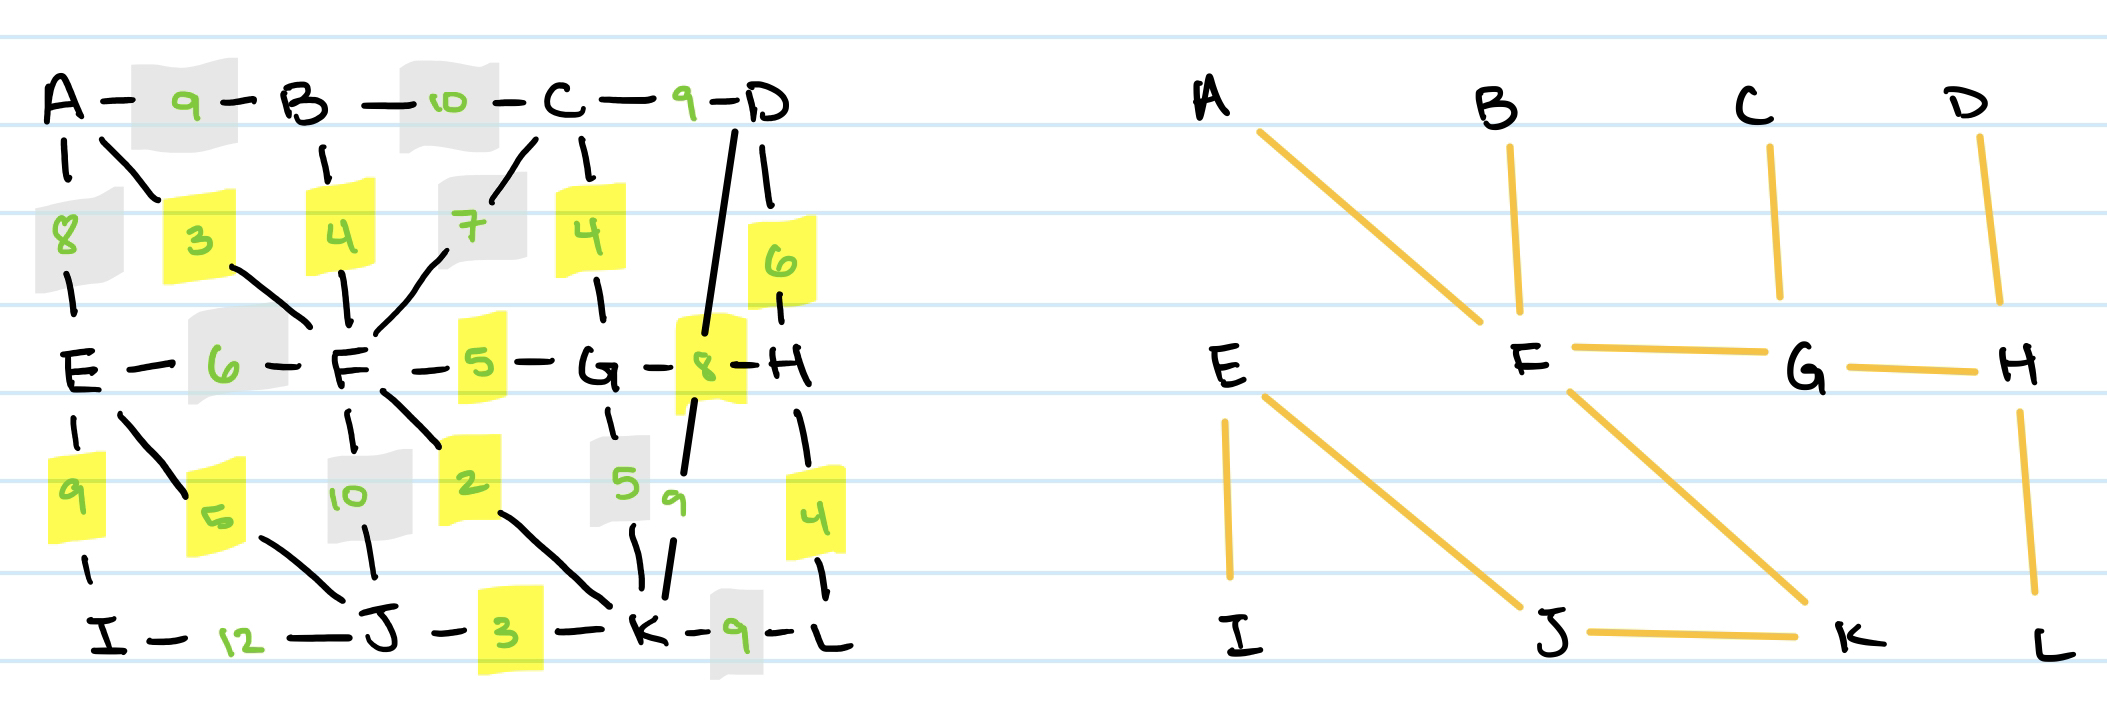 A 9 B 10 C 9 D
8 3 4 7 4 6
E 6 F 5 G 8 H
9 5 10 2 5 9 4
I 12 J 3 K 9 L
A B C D
E F G H
I J K L